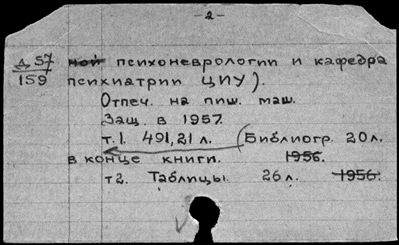 - 2 -
Д 57 ной психоневрологии и кафедра
159 психиатрии ЦИУ).
Отпеч. на пиш. маш.
Защ. в 1957.
т.1. 491,21 л. (Библиогр. 20 л.
в конце книги. 1956.
т2. Таблицы. 26 л. 1956.